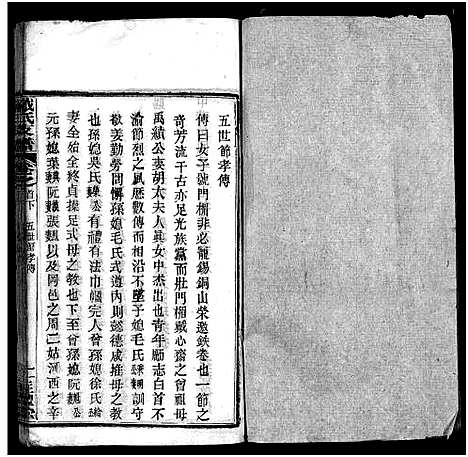 五世節孝傳
傳曰女子號門楣非必寵錫銅山榮邀鉄券也一節之
奇芳流千古亦足光族黨而壯門楣戚心齋之曾祖母
禹績公妻胡太夫人眞女中杰出也青年勵志白首不
渝節烈之風歷數傳而相沿不墜子媳毛氏 訓守
欽姜勤勞罔懈孫媳毛氏式遵內則懿德咸推母之教
也孫媳吳氏 有禮有法巾幗完人曾孫媳徐氏
妻全始全終貞操足式母之教也下至曾孫媳阮
元孫媳葉 阮 張 以及同邑之周二姑河西之辛
戚氏支譜
卷之 首下 五世節孝傳